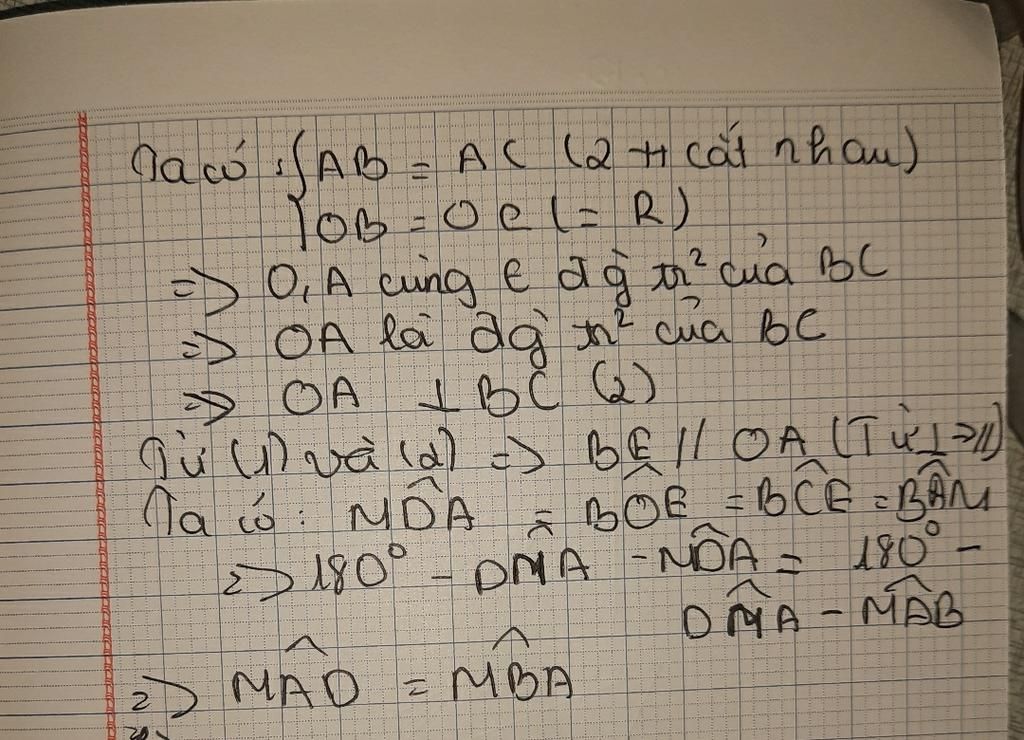 Ta có : { AB = AC (2 tt cắt nhau)
OB = OC (= R)
=> O, A cùng ∈ đg tr² của BC
=> OA là đg tr² của BC
=> OA ⊥ BC (2)
Từ (1) và (2) => BE // OA (Từ ⊥ => //)
Ta có : MDA = BDE = BCE = BAM
=> 180° - DMA - MDA = 180° -
DMA - MAB
=> MAD = MBA